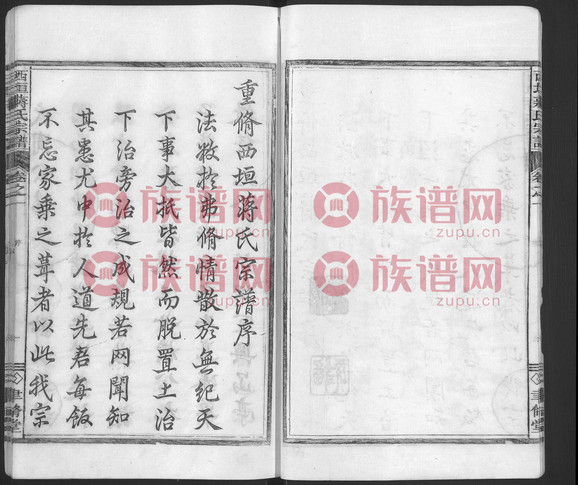 重脩西垣蔣氏宗譜序
法敝於弗脩情散於無紀天
下事大抵皆然而脫置土治
下治旁治之成規若网聞知
其患尤中於人道先君每飯
不忘家乘之葺者以此我宗
西垣蔣氏宗譜
卷之一
聿脩堂
族谱网
www.zupu.cn
族谱网
www.zupu.cn
族谱网
www.zupu.cn
族谱网
www.zupu.cn